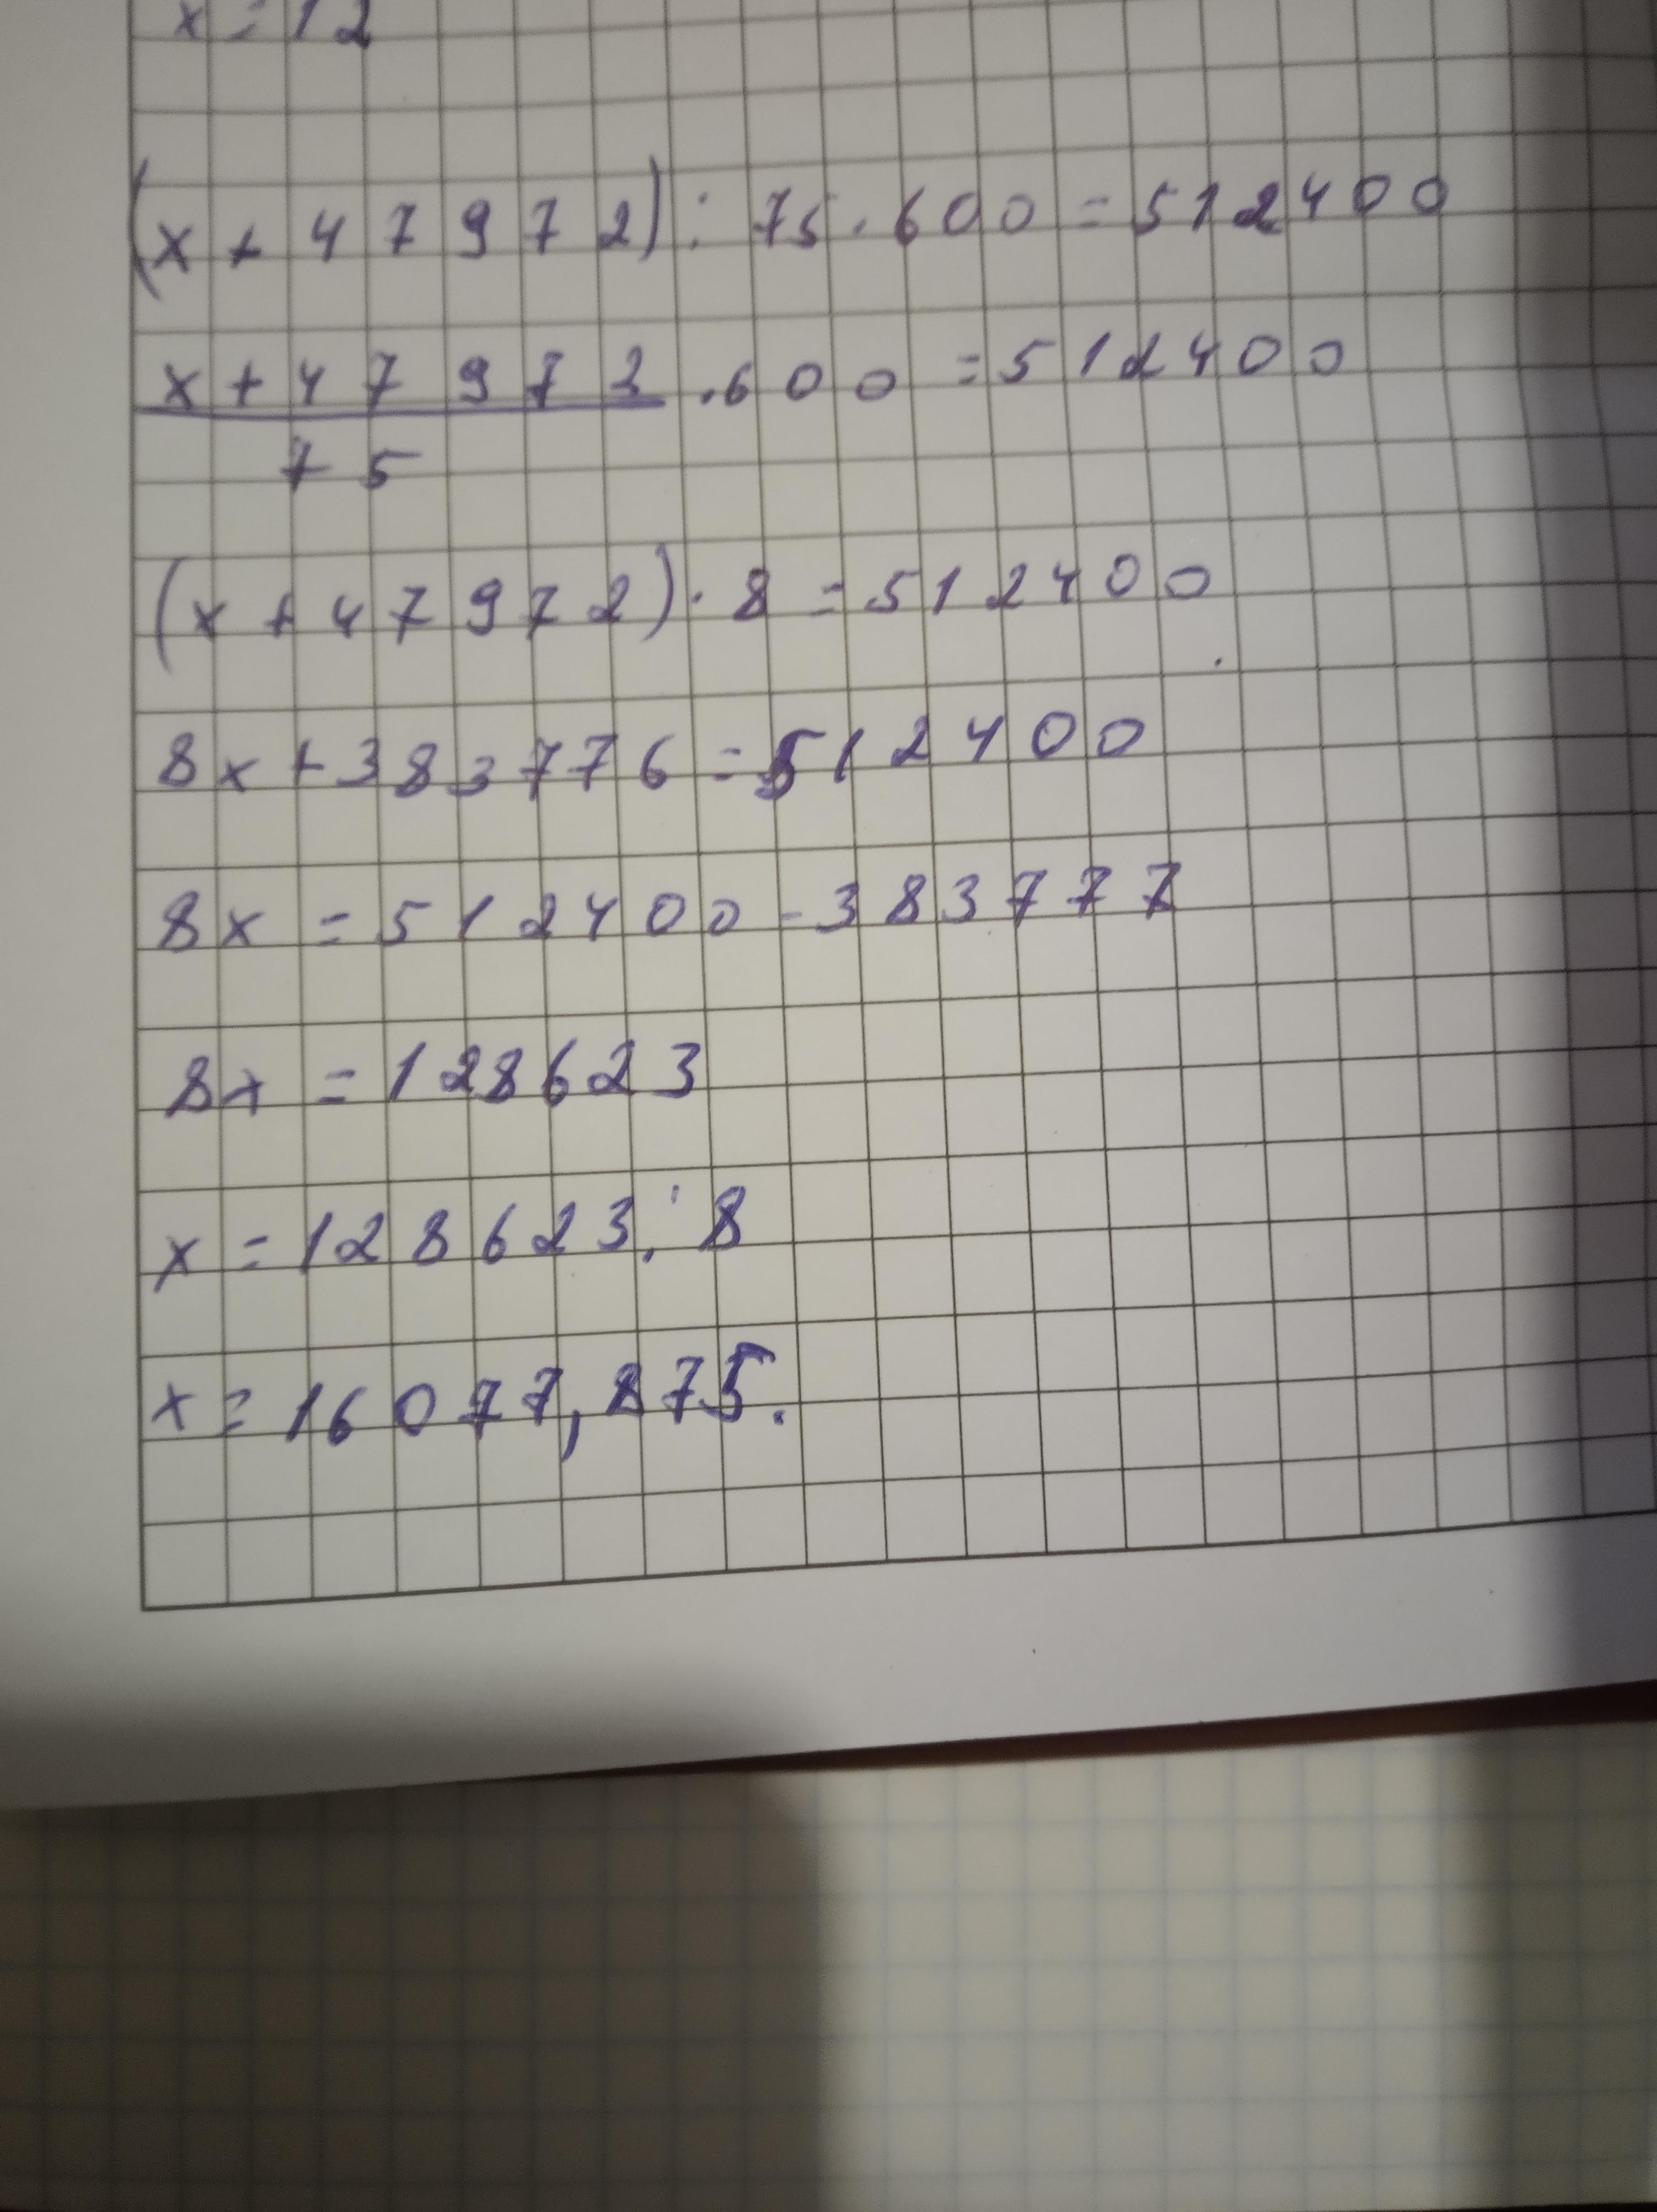 x = 12
(x + 47972) : 75 · 600 = 512400
x + 47972 · 600 = 512400
75
(x + 47972) · 8 = 512400
8x + 383776 = 512400
8x = 512400 - 383777
8x = 128623
x = 128623 : 8
x = 16077,875.